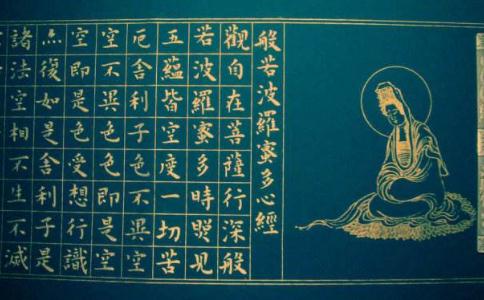 般若波羅蜜多心經
觀自在菩薩行深般
若波羅蜜多時照見
五蘊皆空度一切苦
厄舍利子色不異空
空不異色色即是空
空即是色受想行識
亦復如是舍利子是
諸法空相不生不滅